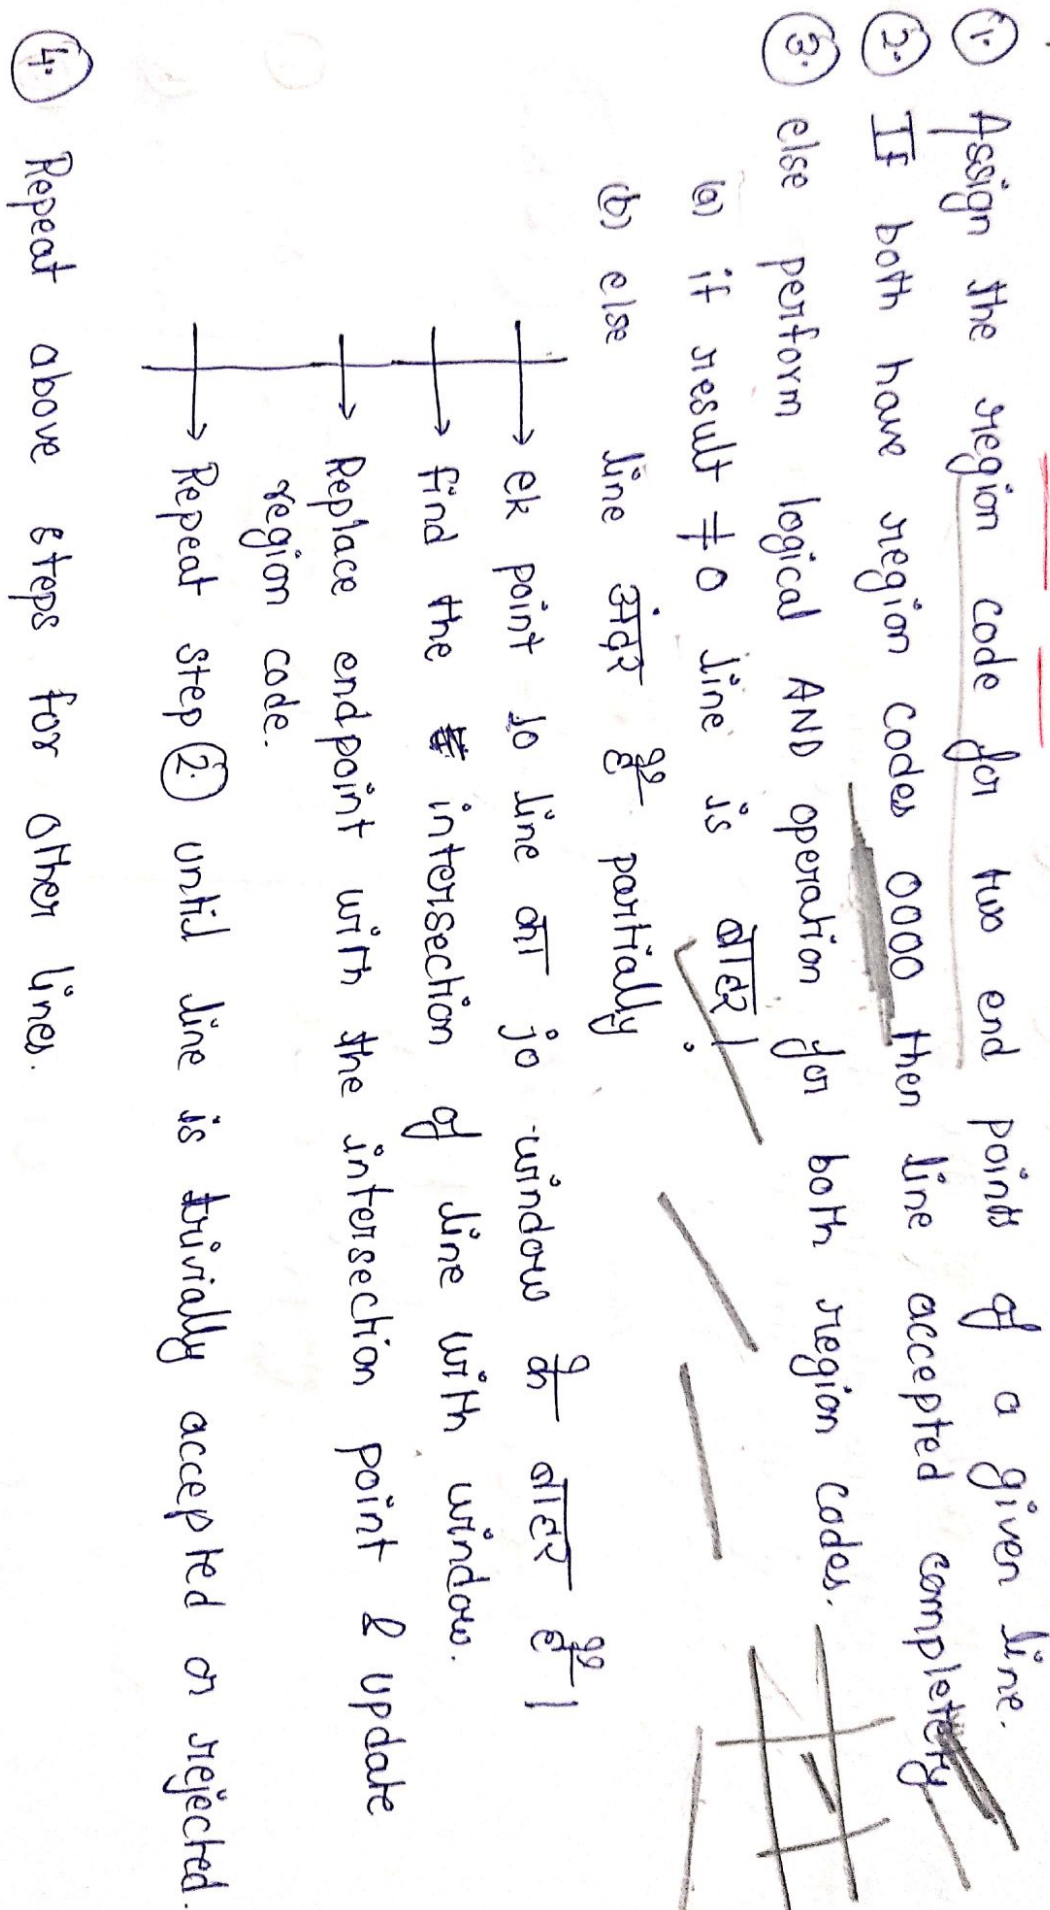 1. Assign the region code for two end points of a given line.
2. If both have region codes 0000 then line accepted completely
3. else perform logical AND operation for both region codes.
(a) if result ≠ 0 line is बाहर।
(b) else line अंदर है partially.
→ ek point lo line का jo window के बाहर है।
→ find the intersection of line with window.
→ Replace endpoint with the intersection point & update
region code.
→ Repeat step 2. until line is trivially accepted or rejected.
4. Repeat above steps for other lines.